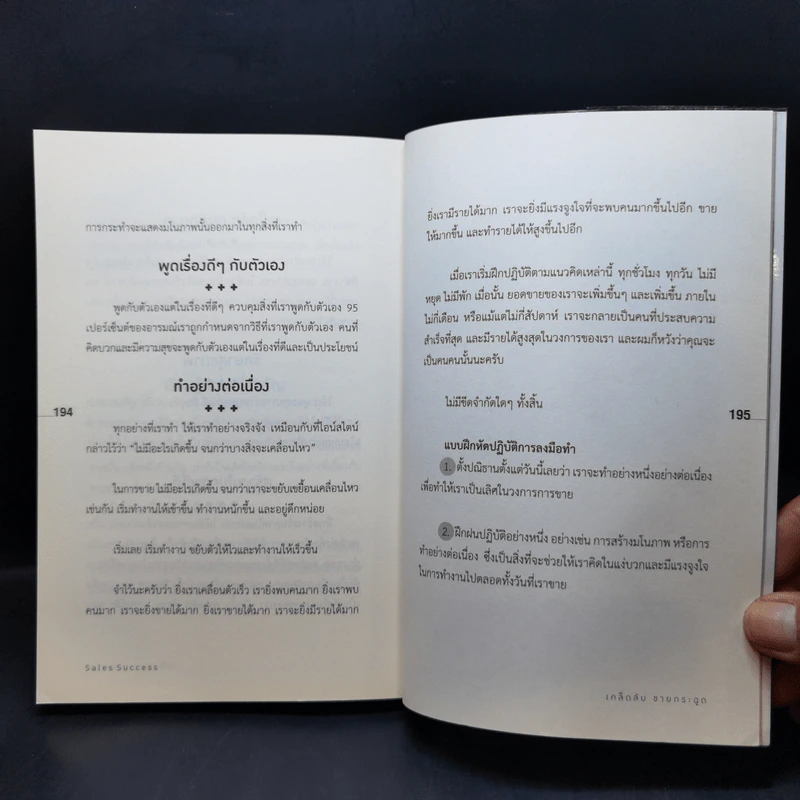 การกระทำจะแสดงมโนภาพนั้นออกมาในทุกสิ่งที่เราทำ
พูดเรื่องดีๆ กับตัวเอง
+ + +
พูดกับตัวเองแต่ในเรื่องที่ดีๆ ควบคุมสิ่งที่เราพูดกับตัวเอง 95
เปอร์เซ็นต์ของอารมณ์เราถูกกำหนดจากวิธีที่เราพูดกับตัวเอง คนที่
คิดบวกและมีความสุขจะพูดกับตัวเองแต่ในเรื่องที่ดีและเป็นประโยชน์
ทำอย่างต่อเนื่อง
+ + +
194
ทุกอย่างที่เราทำ ให้เราทำอย่างจริงจัง เหมือนกับที่ไอน์สไตน์
กล่าวไว้ว่า “ไม่มีอะไรเกิดขึ้น จนกว่าบางสิ่งจะเคลื่อนไหว”
ในการขาย ไม่มีอะไรเกิดขึ้น จนกว่าเราจะขยับเขยื้อนเคลื่อนไหว
เช่นกัน เริ่มทำงานให้เช้าขึ้น ทำงานหนักขึ้น และอยู่ดึกหน่อย
เริ่มเลย เริ่มทำงาน ขยับตัวให้ไวและทำงานให้เร็วขึ้น
จำไว้นะครับว่า ยิ่งเราเคลื่อนตัวเร็ว เรายิ่งพบคนมาก ยิ่งเราพบ
คนมาก เราจะยิ่งขายได้มาก ยิ่งเราขายได้มาก เราจะยิ่งมีรายได้มาก
Sales Success
ยิ่งเรามีรายได้มาก เราจะยิ่งมีแรงจูงใจที่จะพบคนมากขึ้นไปอีก ขาย
ให้มากขึ้น และทำรายได้ให้สูงขึ้นไปอีก
เมื่อเราเริ่มฝึกปฏิบัติตามแนวคิดเหล่านี้ ทุกชั่วโมง ทุกวัน ไม่มี
หยุด ไม่มีพัก เมื่อนั้น ยอดขายของเราจะเพิ่มขึ้นๆ และเพิ่มขึ้น ภายใน
ไม่กี่เดือน หรือแม้แต่ไม่กี่สัปดาห์ เราจะกลายเป็นคนที่ประสบความ
สำเร็จที่สุด และมีรายได้สูงสุดในวงการของเรา และผมก็หวังว่าคุณจะ
เป็นคนคนนั้นนะครับ
ไม่มีขีดจำกัดใดๆ ทั้งสิ้น
195
แบบฝึกหัดปฏิบัติการลงมือทำ
1. ตั้งปณิธานตั้งแต่วันนี้เลยว่า เราจะทำอย่างหนึ่งอย่างต่อเนื่อง
เพื่อทำให้เราเป็นเลิศในวงการการขาย
2. ฝึกฝนปฏิบัติอย่างหนึ่ง อย่างเช่น การสร้างมโนภาพ หรือการ
ทำอย่างต่อเนื่อง ซึ่งเป็นสิ่งที่จะช่วยให้เราคิดในแง่บวกและมีแรงจูงใจ
ในการทำงานไปตลอดทั้งวันที่เราขาย
เคล็ดลับ ขายกระฉูด